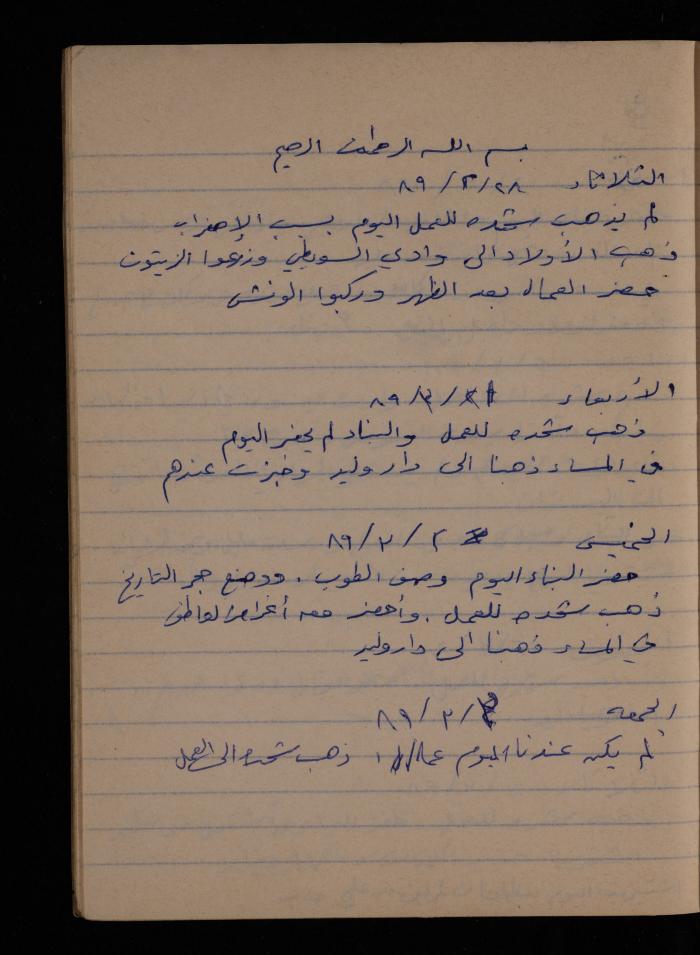 بسم الله الرحمن الرحيم
الثلاثاء ٨٩/٢/٢٨
لم يذهب شحده للعمل اليوم بسبب الإضراب
ذهب الأولاد الى وادي السويطي وزرعوا الزيتون
حضر العمال بعد الظهر وركبوا الونش
الأربعاء ٨٩/٣/١
ذهب شحده للعمل والبناء لم يحضر اليوم
في المساء ذهبنا الى دار وليد وخبزت عندهم
الخميس ٨٩/٣/٢
حضر البناء اليوم وصف الطوب . ووضع حجر التاريخ
ذهب شحده للعمل . وأحضر معه أغراض
في المساء ذهبنا الى دار وليد
الجمعه ٨٩/٣/
لم يكن عندنا اليوم عمال ، ذهب شحده الى العمل